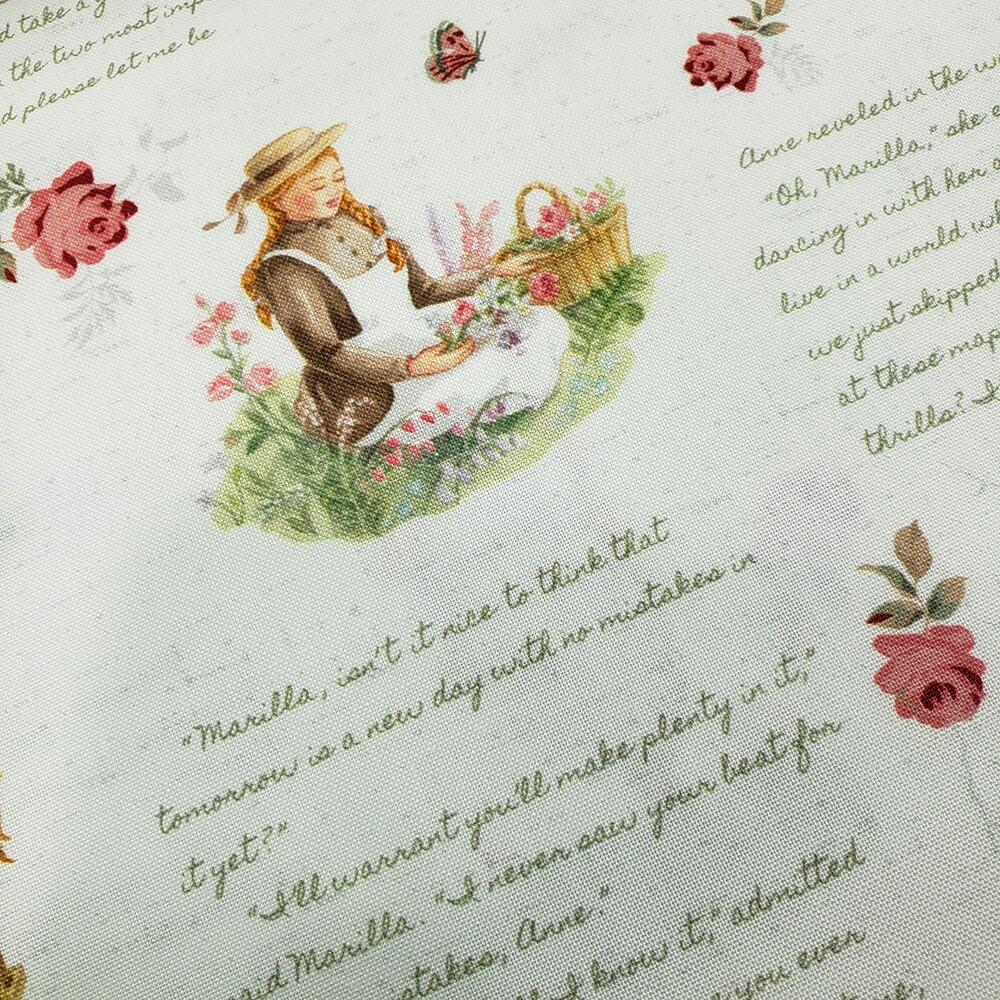 d take a g
the two most imp
d please let me be
Anne reveled in the w
"Oh, Marilla," she e
dancing in with her
live in a world wh
we just skipped
at these map
thrills? I
"Marilla, isn't it nice to think that
tomorrow is a new day with no mistakes in
it yet?"
"I'll warrant you'll make plenty in it,"
said Marilla. "I never saw your beat for
stakes, Anne."
I know it," admitted
you ever